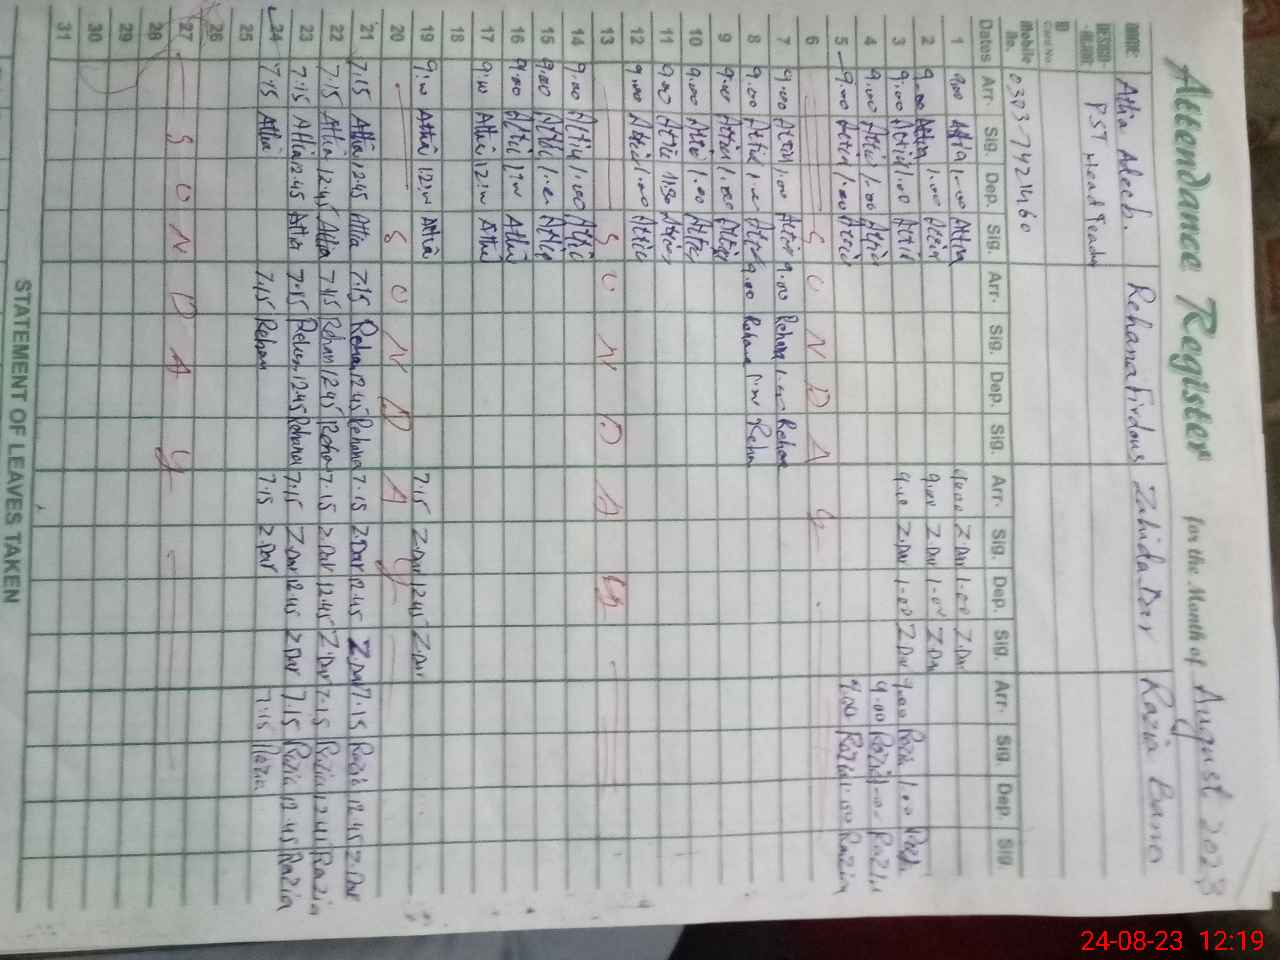 Attendance Register for the Month of August 2023
NAME: Attia Adeeb. Rehana Firdous Zahida Dar Razia Bano
DESIG- NATION: PST Head Teacher
ID Card No.
Mobile No. 0303-7421460
Dates Arr. Sig. Dep. Sig. Arr. Sig. Dep. Sig. Arr. Sig. Dep. Sig. Arr. Sig. Dep. Sig.
1 9.00 Attia 1.00 Attia 9.00 Z.Dar 1.00 Z.Dar
2 9.00 Attia 1.00 Attia 9.00 Z.Dar 1.00 Z.Dar
3 9.00 Attia 1.00 Attia 9.00 Z.Dar 1.00 Z.Dar 9.00 Razia 1.00
4 9.00 Attia 1.00 Attia 9.00 Razia 1.00 Razia
5 9.00 Attia 1.00 Attia 9.00 Razia 1.00 Razia
6 S U N D A Y
7 9.00 Attia 1.00 Attia 9.00 Rehana 1.00 Rehana
8 9.00 Attia 1.00 Attia 9.00 Rehana 1.00 Rehana
9 9.00 Attia 1.00 Attia
10 9.00 Attia 1.00 Attia
11 9.00 Attia 11.30 Attia
12 9.00 Attia 1.00 Attia
13 S U N D A Y
14 9.00 Attia 1.00 Attia
15 9.00 Attia 1.00 Attia
16 9.00 Attia 1.00 Attia
17 9.00 Attia 12.00 Attia
18
19 9.00 Attia 12.00 Attia 7.15 Z.Dar 12.45 Z.Dar
20 S U N D A Y
21 7.15 Attia 12.45 Attia 7.15 Rehana 12.45 Rehana 7.15 Z.Dar 12.45 Z.Dar 7.15 Razia 12.45 Z.Dar
22 7.15 Attia 12.45 Attia 7.15 Rehana 12.45 Rehana 7.15 Z.Dar 12.45 Z.Dar 7.15 Razia 12.45 Razia
23 7.15 Attia 12.45 Attia 7.15 Rehana 12.45 Rehana 7.15 Z.Dar 12.45 Z.Dar 7.15 Razia 12.45 Razia
24 7.15 Attia 7.15 Rehana 7.15 Z.Dar 7.15 Razia
25
26
27 S U N D A Y
28
29
30
31
STATEMENT OF LEAVES TAKEN
24-08-23 12:19